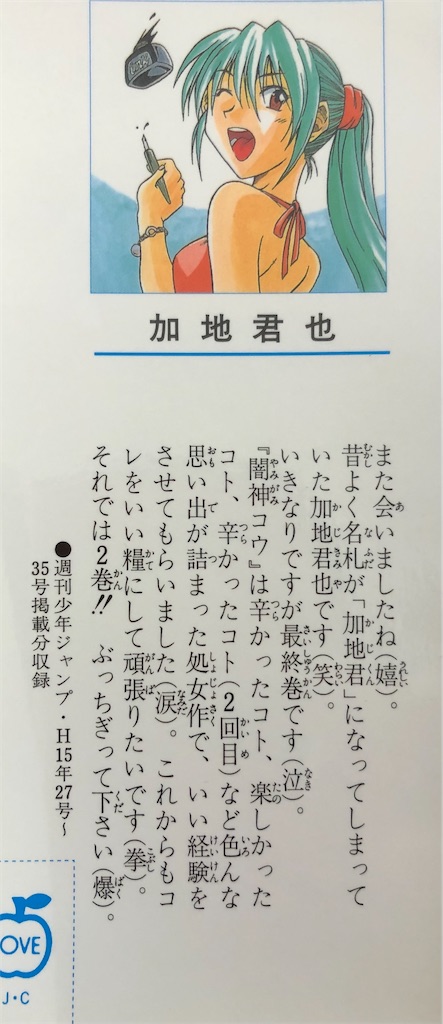 加地君也
また会いましたね（嬉）。
昔よく名札が「加地君」になってしまって
いた加地君也です（笑）。
いきなりですが最終巻です（泣）。
『闇神コウ』は辛かったコト、楽しかった
コト、辛かったコト（2回目）など色んな
思い出が詰まった処女作で、いい経験を
させてもらいました（涙）。これからもコ
レをいい糧にして頑張りたいです（拳）。
それでは2巻!!　ぶっちぎって下さい（爆）。
●週刊少年ジャンプ・H15年27号～
35号掲載分収録
OVE
J・C